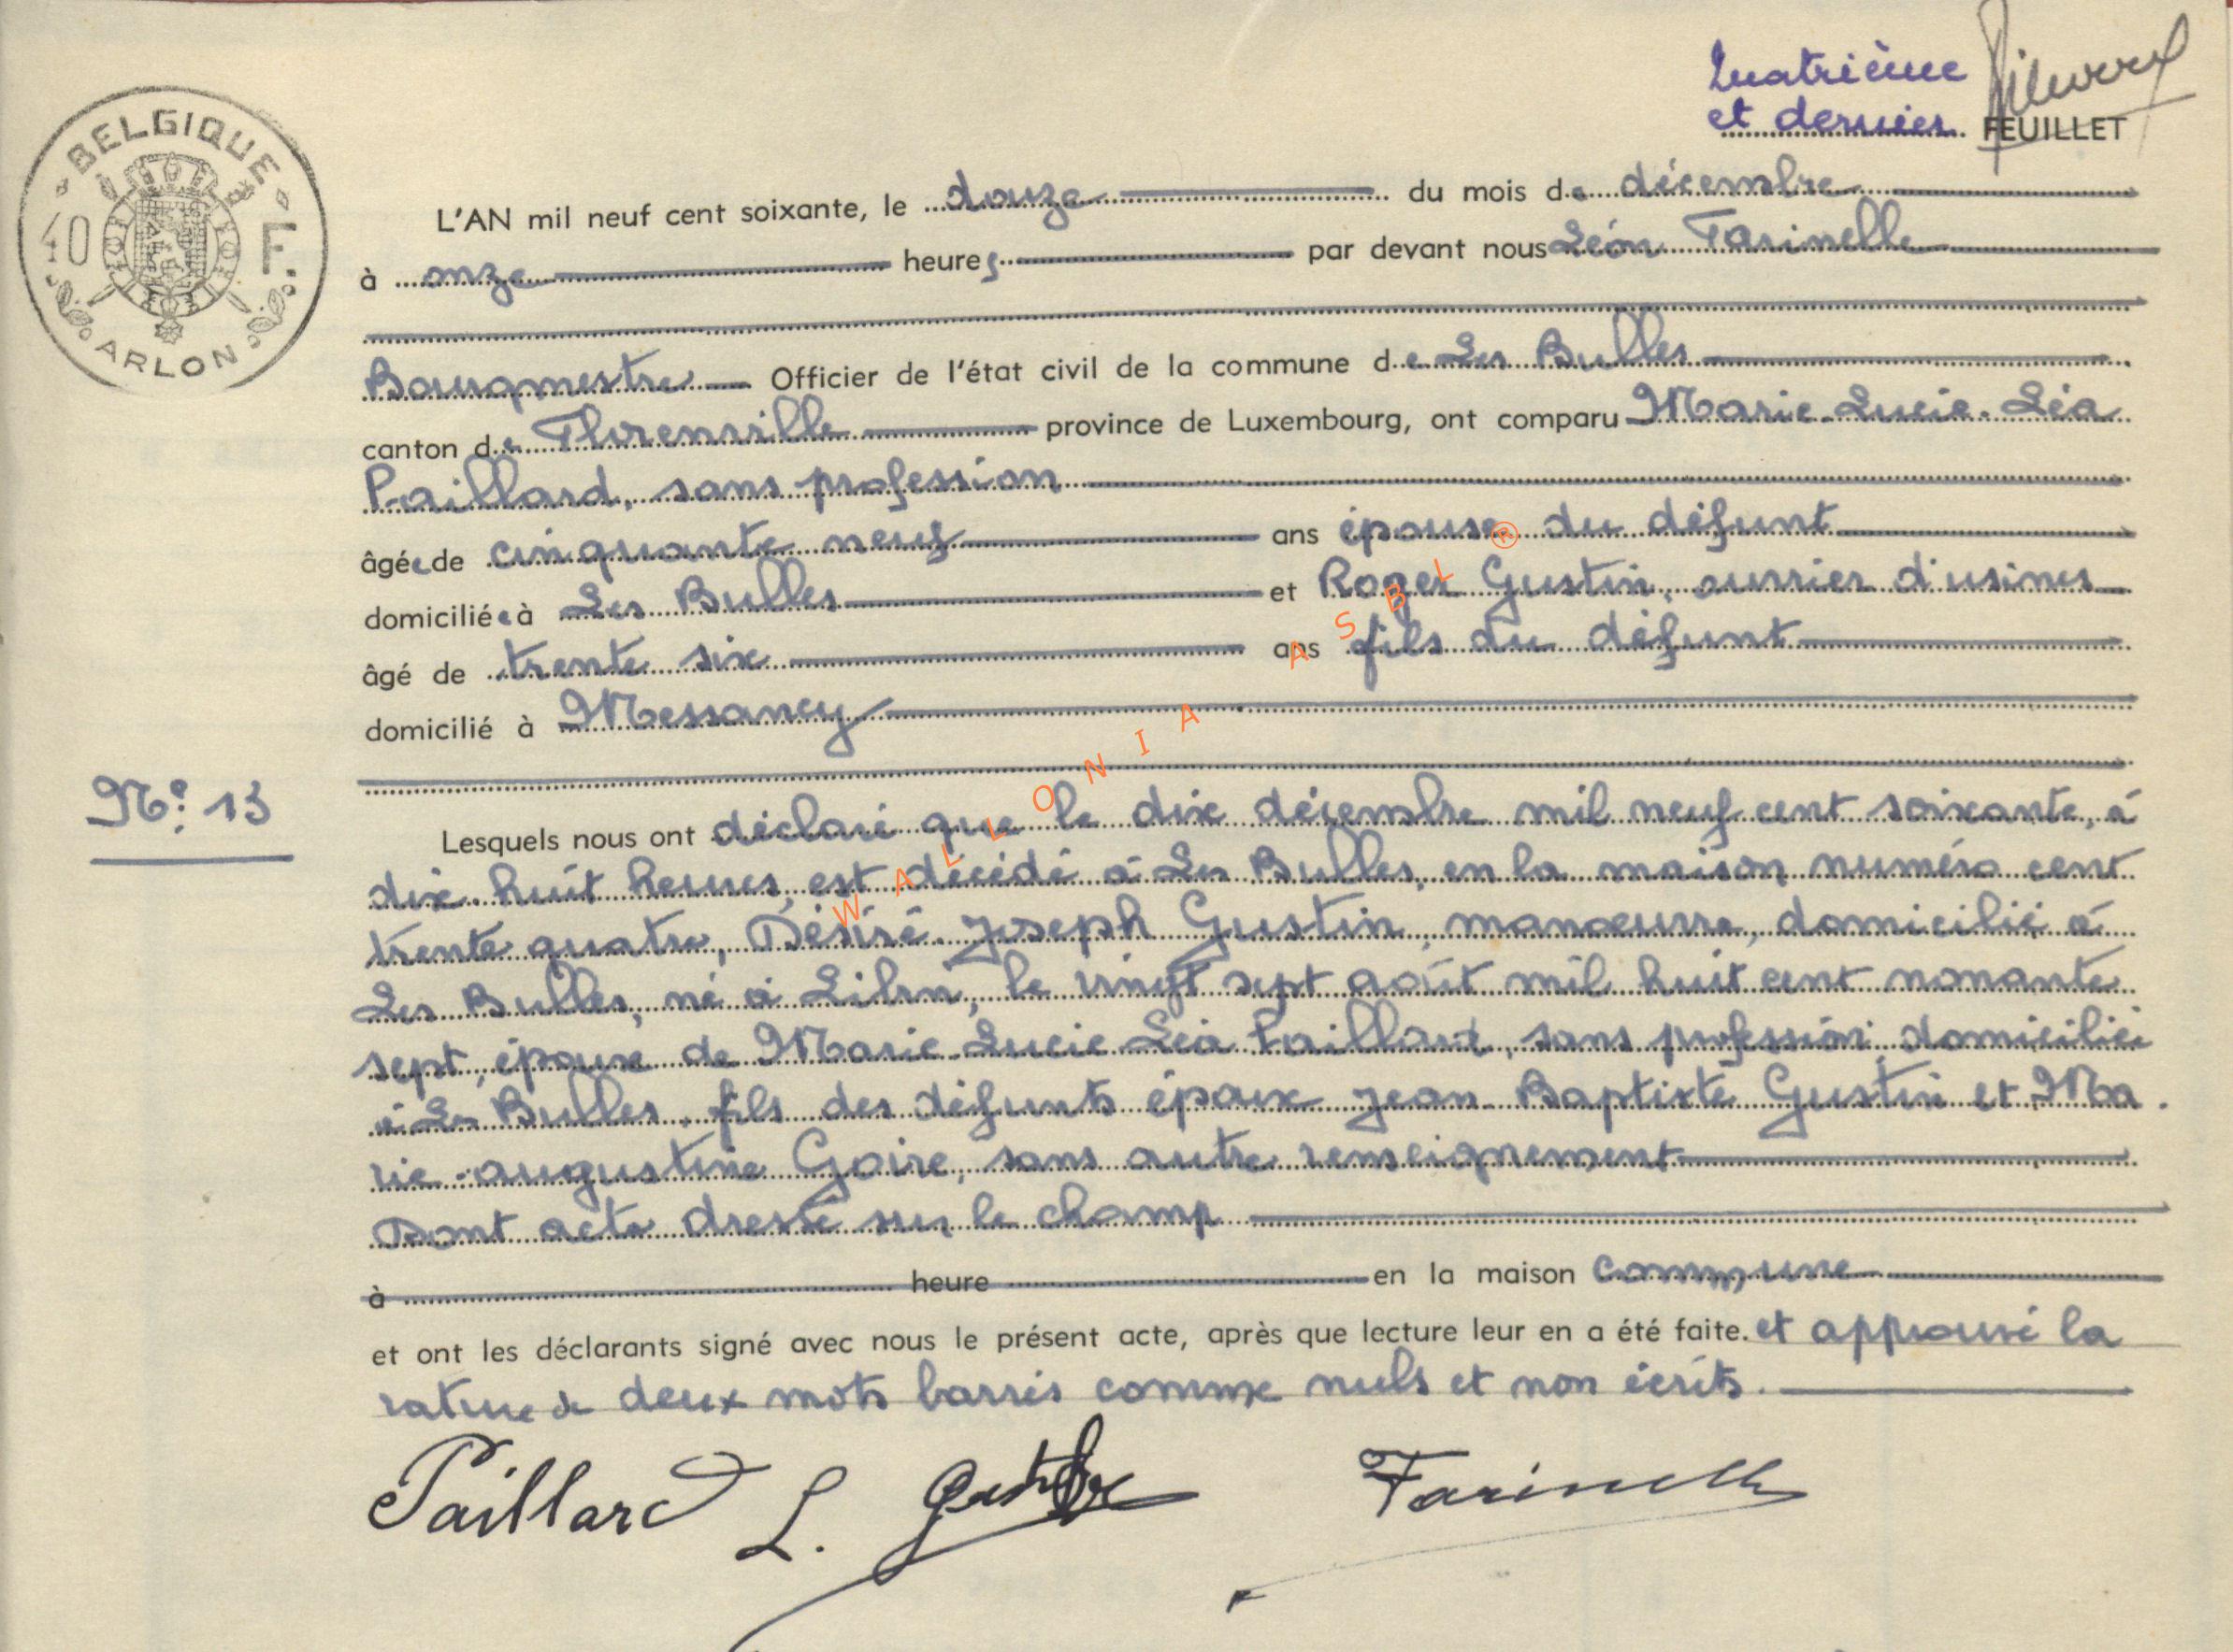 Quatrième
et dernier FEUILLET
BELGIQUE
40 F.
ARLON
L'AN mil neuf cent soixante, le douze du mois de décembre
à onze heures par devant nous Léon Farinelle
Bourgmestre Officier de l'état civil de la commune de Les Bulles
canton de Florenville province de Luxembourg, ont comparu Marie-Lucie-Léa
Paillard, sans profession
âgée de cinquante neuf ans épouse du défunt
domiciliée à Les Bulles et Roger Gustin, ouvrier d'usines
âgé de trente six ans fils du défunt
domicilié à Messancy
WALLONIA ASBL ®
N° 13
Lesquels nous ont déclaré que le dix décembre mil neuf cent soixante, à
dix-huit heures, est décédé à Les Bulles, en la maison numéro cent
trente quatre, Désiré Joseph Gustin, manœuvre, domicilié à
Les Bulles, né à Libin, le vingt sept août mil huit cent nonante
sept, époux de Marie-Lucie Léa Paillard, sans profession, domiciliée
à Les Bulles, fils des défunts époux Jean Baptiste Gustin et Ma-
rie-Augustine Goire, sans autre renseignement
Dont acte dressé sur le champ
à heure en la maison commune
et ont les déclarants signé avec nous le présent acte, après que lecture leur en a été faite. et approuvé la
rature de deux mots barrés comme nuls et non écrits.
Paillard L. Farinelle